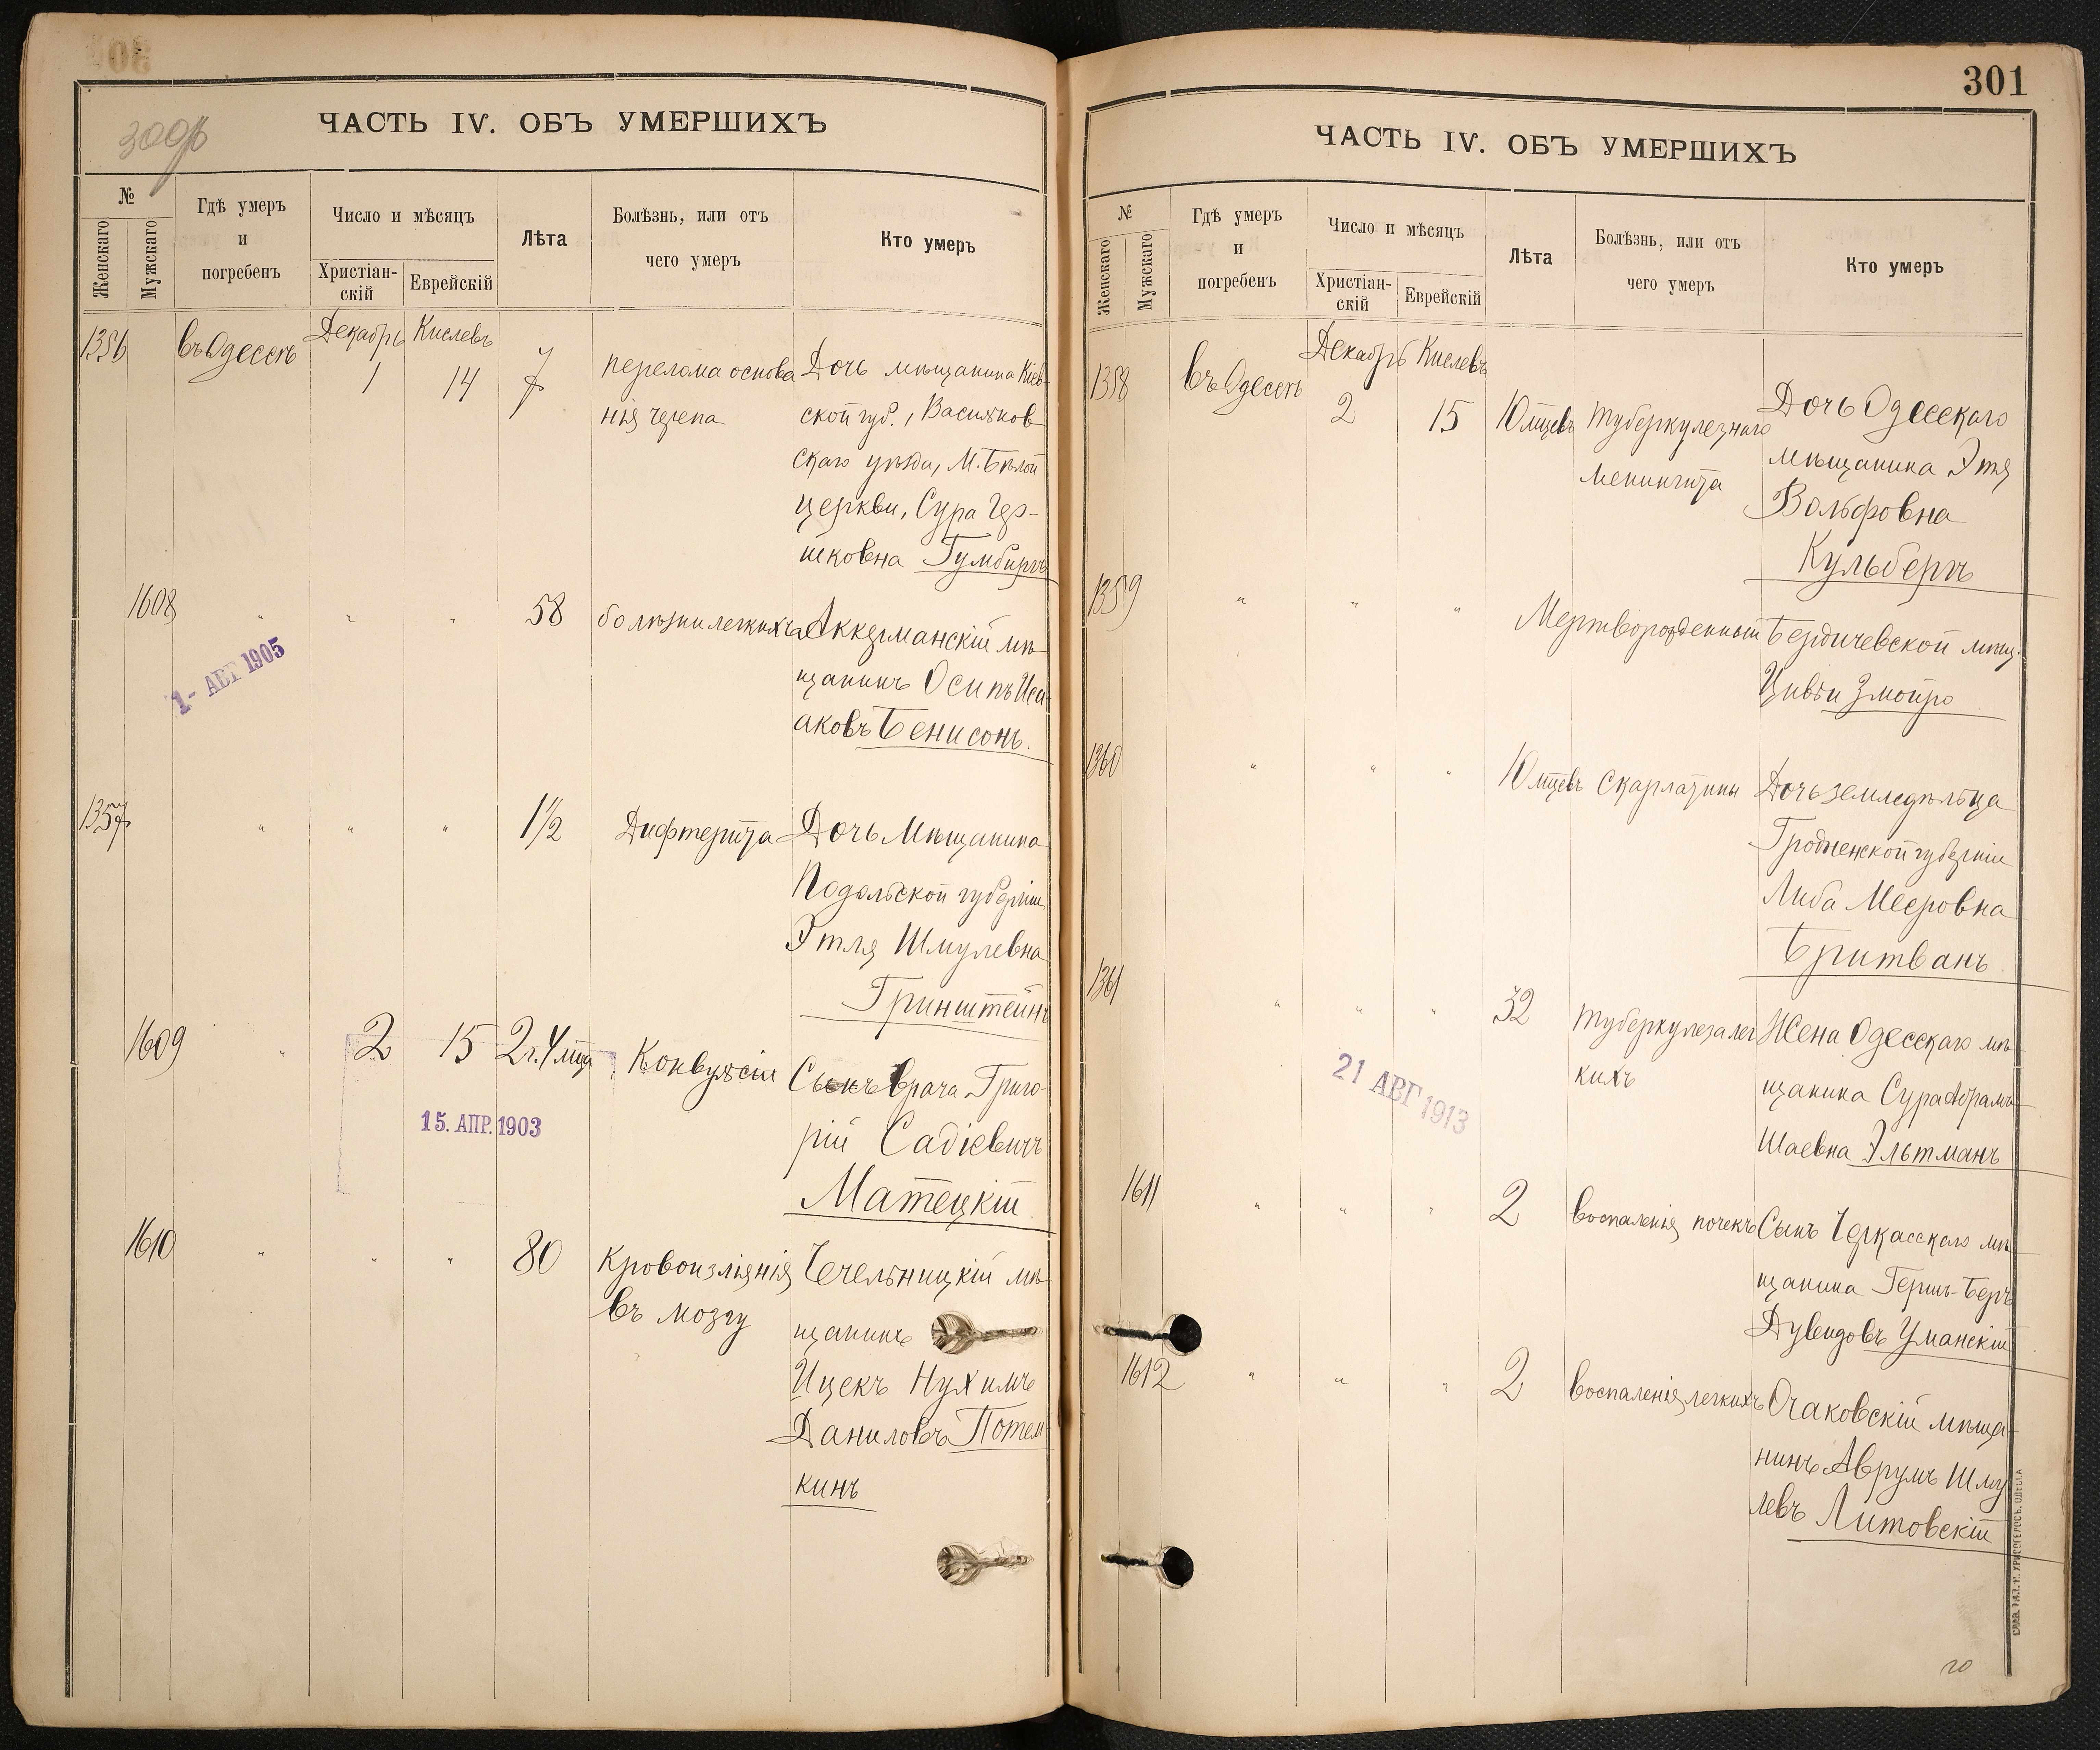 300об
ЧАСТЬ IV. ОБЪ УМЕРШИХЪ
№
Женскаго
Мужскаго
Гдѣ умеръ
и
погребенъ
Число и мѣсяцъ
Христіан-
скій
Еврейскій
Лѣта
Болѣзнь, или отъ
чего умеръ
Кто умеръ
1356
въ Одессѣ
Декабрь
1
Кислевъ
14
7
перелома основа
нія черепа
Дочь мѣщанина Кіев-
ской губ., Васильков
скаго уѣзда, М. Бѣлой
церкви, Сура Гер-
шковна Гумбиргъ
1608
" " "
58
болѣзни легкихъ
Аккерманскій мѣ
щанинъ Осипъ Иса-
аковъ Бенисонъ.
1- АВГ 1905
1357
" " "
1½
Дифтерита
Дочь мѣщанина
Подольской губерніи
Этля Шмулевна
Гринштейнъ
1609
"
2
15
2 г. 4 мца
Конвульсіи
Сынъ врача Григо-
рій Садіевичъ
Матецкій
15. АПР. 1903
1610
" " "
80
Кровоизліянія
въ мозгу
Чечельницкій мѣ
щанинъ
Ицекъ Нухимъ
Даниловъ Потем-
кинъ
301
ЧАСТЬ IV. ОБЪ УМЕРШИХЪ
№
Женскаго
Мужскаго
Гдѣ умеръ
и
погребенъ
Число и мѣсяцъ
Христіан-
скій
Еврейскій
Лѣта
Болѣзнь, или отъ
чего умеръ
Кто умеръ
1358
въ Одессѣ
Декабрь
2
Кислевъ
15
10 мцевъ
туберкулезнаго
менингита
Дочь Одесскаго
мѣщанина Этя
Вольфовна
Кульбергъ
1359
" " "
Мертворожденный
Бердичевской мѣщ.
Цивьи Змойро
1360
" " "
10 мцевъ
Скарлатины
Дочь земледѣльца
Гродненской губерніи
Либа Мееровна
Бритванъ
1361
" " "
32
туберкулеза лег
кихъ
Жена Одесскаго мѣ
щанина Сура Абрамъ-
Шаевна Эльтманъ
21 АВГ 1913
1611
" " "
2
воспаленія почекъ
Сынъ Черкасскаго мѣ
щанина Гершъ-Беръ
Дувидовъ Уманскій
1612
" " "
2
воспаленія легкихъ
Очаковскій мѣща-
нинъ Аврумъ Шму
левъ Литовскій